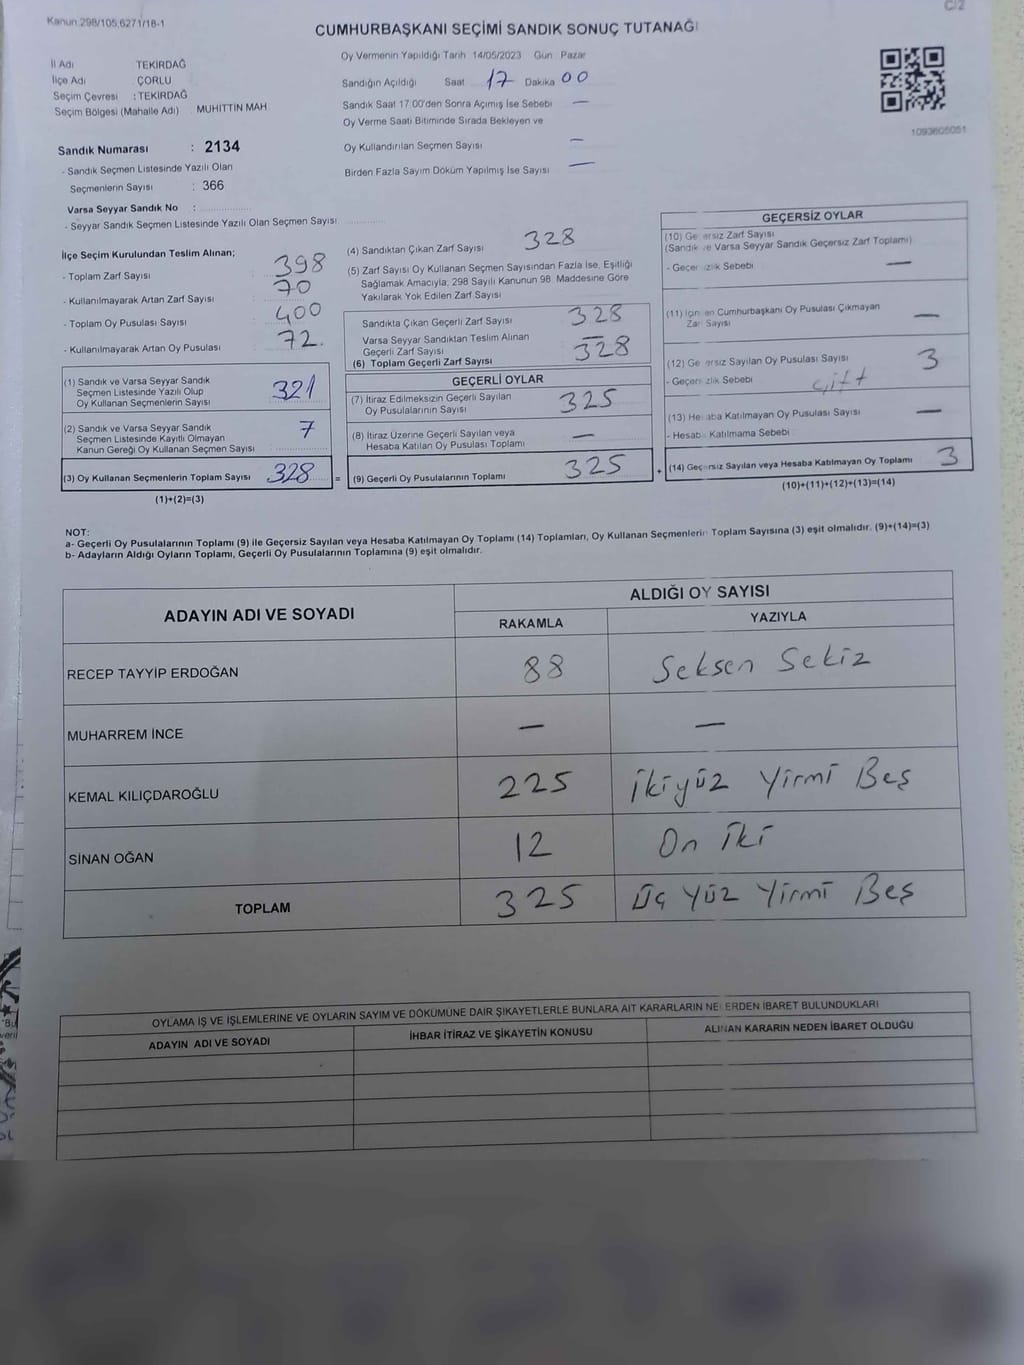 C/2
Kanun 298/105,6271/18-1
CUMHURBAŞKANI SEÇİMİ SANDIK SONUÇ TUTANAĞI
İl Adı TEKİRDAĞ
İlçe Adı ÇORLU
Seçim Çevresi : TEKİRDAĞ
Seçim Bölgesi (Mahalle Adı) MUHİTTİN MAH
Oy Vermenin Yapıldığı Tarih 14/05/2023 Gün Pazar
Sandığın Açıldığı Saat 17 Dakika 00
Sandık Saat 17.00'den Sonra Açımış İse Sebebi —
Oy Verme Saati Bitiminde Sırada Bekleyen ve
Oy Kullandırılan Seçmen Sayısı —
Birden Fazla Sayım Döküm Yapılmış İse Sayısı —
1093605051
Sandık Numarası : 2134
- Sandık Seçmen Listesinde Yazılı Olan
Seçmenlerin Sayısı : 366
Varsa Seyyar Sandık No :
- Seyyar Sandık Seçmen Listesinde Yazılı Olan Seçmen Sayısı
İlçe Seçim Kurulundan Teslim Alınan;
- Toplam Zarf Sayısı 398
- Kullanılmayarak Artan Zarf Sayısı 70
- Toplam Oy Pusulası Sayısı 400
- Kullanılmayarak Artan Oy Pusulası 72.
(1) Sandık ve Varsa Seyyar Sandık
Seçmen Listesinde Yazılı Olup
Oy Kullanan Seçmenlerin Sayısı 321
(2) Sandık ve Varsa Seyyar Sandık
Seçmen Listesinde Kayıtlı Olmayan
Kanun Gereği Oy Kullanan Seçmen Sayısı 7
(3) Oy Kullanan Seçmenlerin Toplam Sayısı 328 =
(1)+(2)=(3)
(4) Sandıktan Çıkan Zarf Sayısı 328
(5) Zarf Sayısı Oy Kullanan Seçmen Sayısından Fazla İse, Eşitliği
Sağlamak Amacıyla, 298 Sayılı Kanunun 98. Maddesine Göre
Yakılarak Yok Edilen Zarf Sayısı
Sandıkta Çıkan Geçerli Zarf Sayısı 328
Varsa Seyyar Sandıktan Teslim Alınan
Geçerli Zarf Sayısı —
(6) Toplam Geçerli Zarf Sayısı 328
GEÇERLİ OYLAR
(7) İtiraz Edilmeksizin Geçerli Sayılan
Oy Pusulalarının Sayısı 325
(8) İtiraz Üzerine Geçerli Sayılan veya
Hesaba Katılan Oy Pusulası Toplamı —
(9) Geçerli Oy Pusulalarının Toplamı 325 +
GEÇERSİZ OYLAR
(10) Geçersiz Zarf Sayısı
(Sandık ve Varsa Seyyar Sandık Geçersiz Zarf Toplamı)
- Geçersizlik Sebebi —
(11) İçinden Cumhurbaşkanı Oy Pusulası Çıkmayan
Zarf Sayısı —
(12) Geçersiz Sayılan Oy Pusulası Sayısı 3
- Geçersizlik Sebebi çift
(13) Hesaba Katılmayan Oy Pusulası Sayısı —
- Hesaba Katılmama Sebebi
(14) Geçersiz Sayılan veya Hesaba Katılmayan Oy Toplamı 3
(10)+(11)+(12)+(13)=(14)
NOT:
a- Geçerli Oy Pusulalarının Toplamı (9) ile Geçersiz Sayılan veya Hesaba Katılmayan Oy Toplamı (14) Toplamları, Oy Kullanan Seçmenlerin Toplam Sayısına (3) eşit olmalıdır. (9)+(14)=(3)
b- Adayların Aldığı Oyların Toplamı, Geçerli Oy Pusulalarının Toplamına (9) eşit olmalıdır.
ADAYIN ADI VE SOYADI ALDIĞI OY SAYISI
RAKAMLA YAZIYLA
RECEP TAYYİP ERDOĞAN 88 Seksen Sekiz
MUHARREM İNCE — —
KEMAL KILIÇDAROĞLU 225 İkiyüz Yirmi Beş
SİNAN OĞAN 12 On İki
TOPLAM 325 Üç Yüz Yirmi Beş
OYLAMA İŞ VE İŞLEMLERİNE VE OYLARIN SAYIM VE DÖKÜMÜNE DAİR ŞİKAYETLERLE BUNLARA AİT KARARLARIN NELERDEN İBARET BULUNDUKLARI
ADAYIN ADI VE SOYADI İHBAR İTİRAZ VE ŞİKAYETİN KONUSU ALINAN KARARIN NEDEN İBARET OLDUĞU